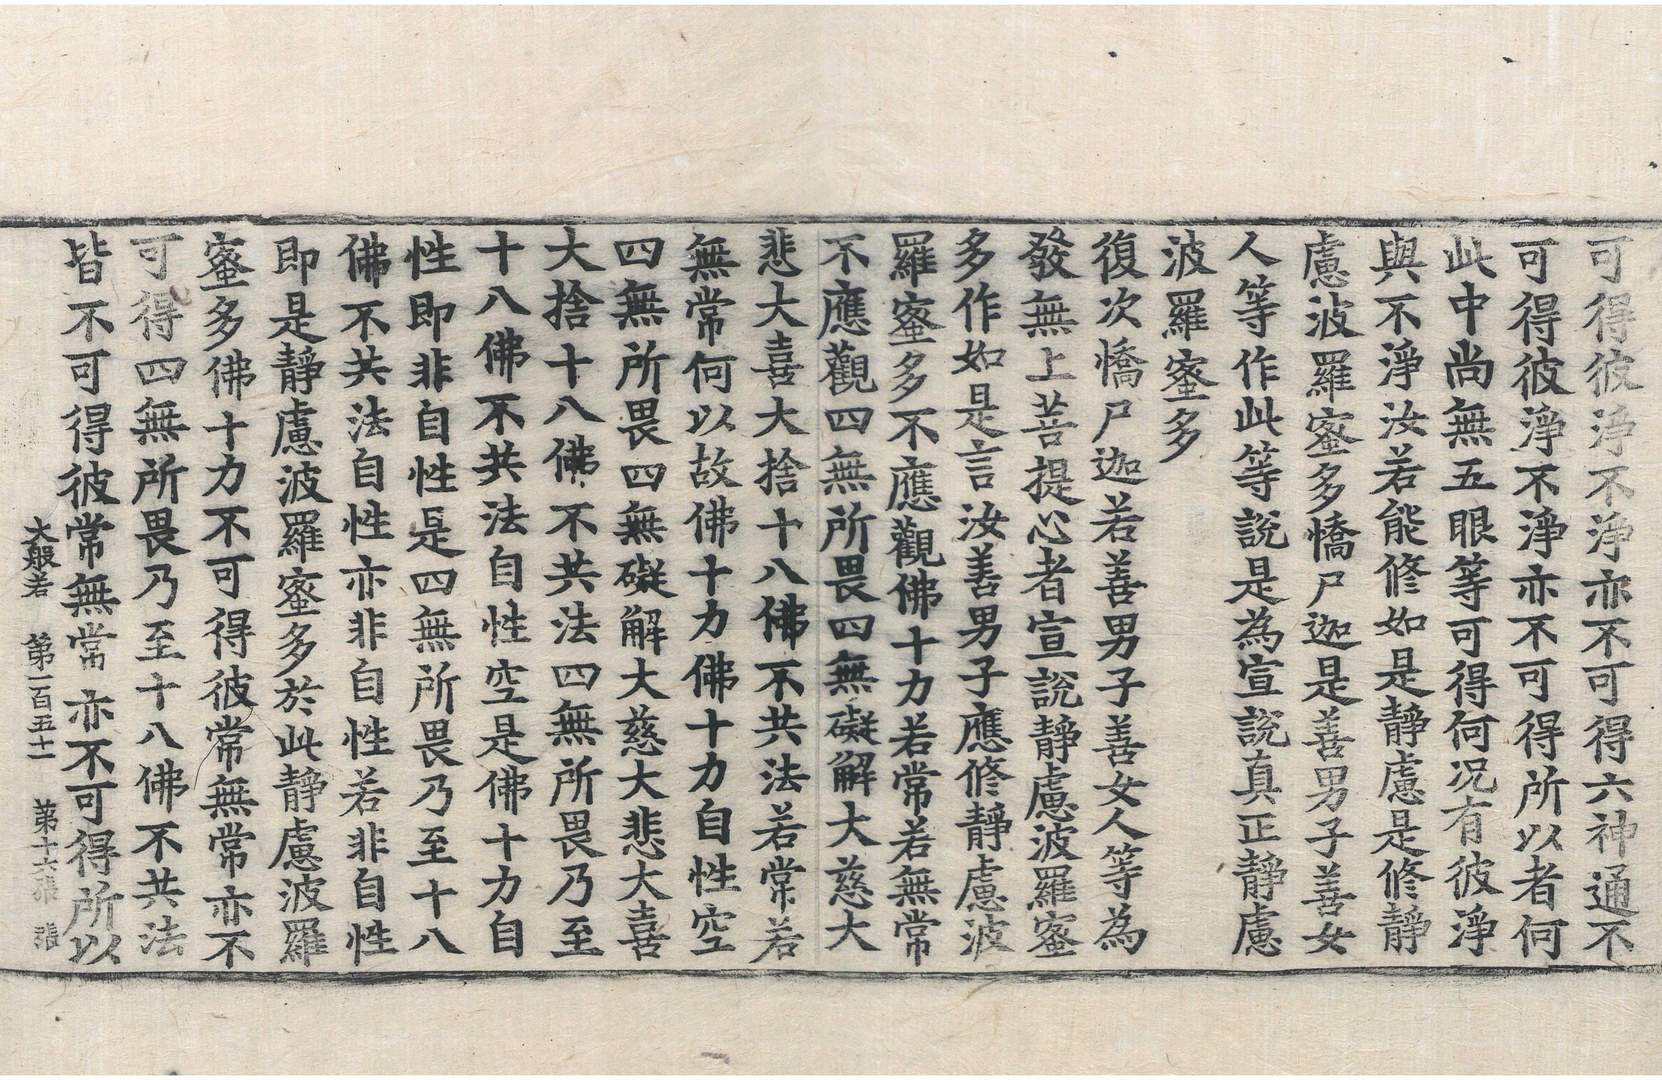 可得彼淨不淨亦不可得六神通不
可得彼淨不淨亦不可得所以者何
此中尚無五眼等可得何况有彼淨
與不淨汝若能修如是靜慮是修靜
慮波羅蜜多憍尸迦是善男子善女
人等作此等說是為宣說真正靜慮
波羅蜜多
復次憍尸迦若善男子善女人等為
發無上菩提心者宣說靜慮波羅蜜
多作如是言汝善男子應修靜慮波
羅蜜多不應觀佛十力若常若無常
不應觀四無所畏四無礙解大慈大
悲大喜大捨十八佛不共法若常若
無常何以故佛十力佛十力自性空
四無所畏四無礙解大慈大悲大喜
大捨十八佛不共法四無所畏乃至
十八佛不共法自性空是佛十力自
性即非自性是四無所畏乃至十八
佛不共法自性亦非自性若非自性
即是靜慮波羅蜜多於此靜慮波羅
蜜多佛十力不可得彼常無常亦不
可得四無所畏乃至十八佛不共法
皆不可得彼常無常亦不可得所以
大般若 第一百五十一 第十六張 張